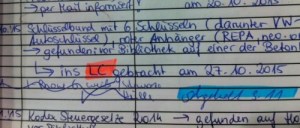 per Mail informiert am 20.10.2015
10.15 Schlüsselbund mit 6 Schlüsseln (darunter VW
Autoschlüssel, roter Anhänger (REPA,
gefunden vor Bibliothek auf einer der Beton
↳ ins LC gebracht am 27.10.2015
Abgeholt 3.11
.15 Kodex Steuergesetze 2014 → gefunden auf